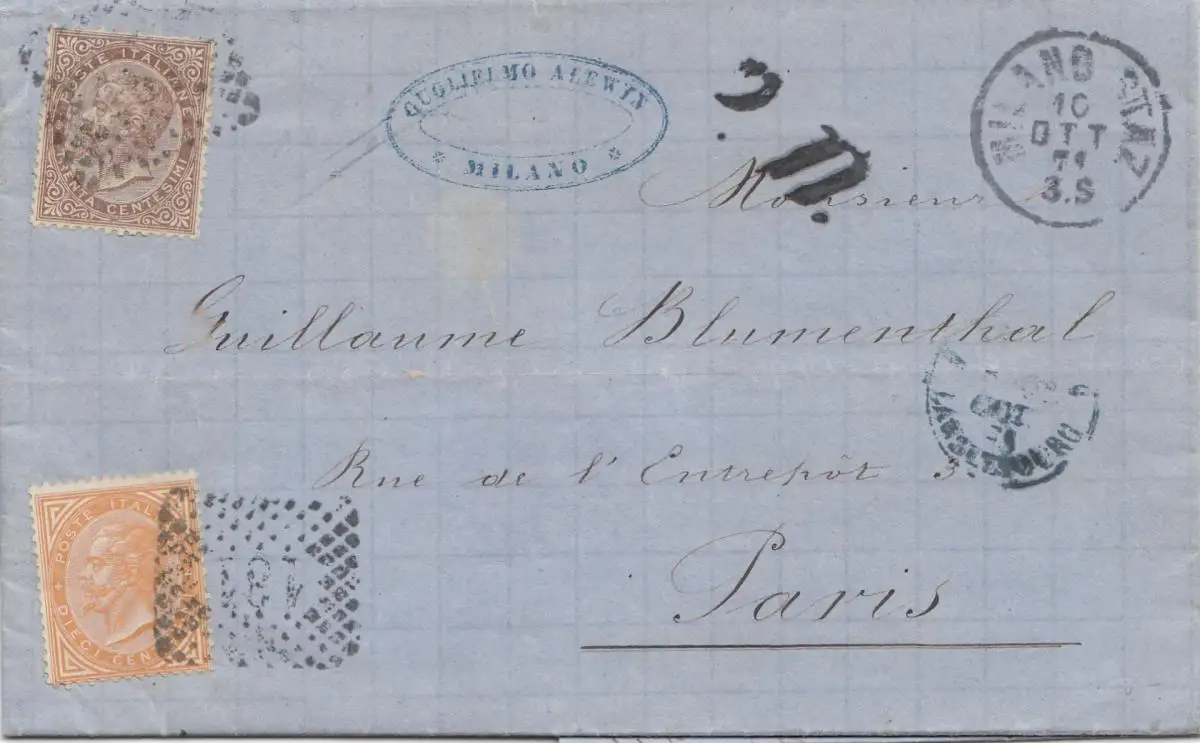 POSTE ITALIANE
CENTESIMI
GUGLIELMO ALEWYN
MILANO
MILANO STAZ
10
OTT
71
3.S
Monsieur
Guillaume Blumenthal
Rue de l'Entrepôt 3
Paris
POSTE ITAL
DIECI CEN
181